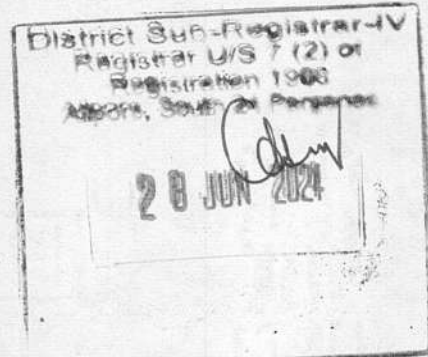 District Sub-Registrar-IV
Registrar U/S 7 (2) of
Registration 1908
Alipore, South 24 Parganas
28 JUN 2024